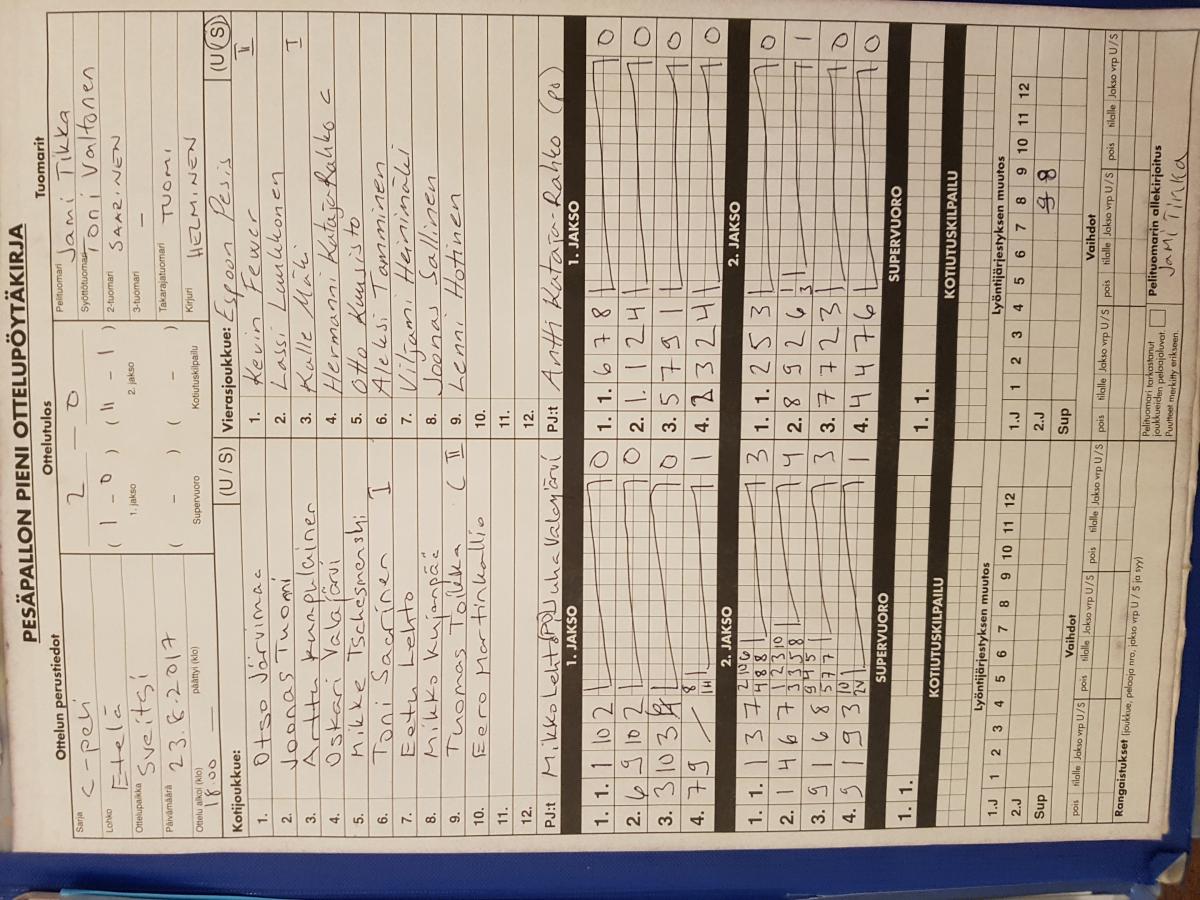 PESÄPALLON PIENI OTTELUPÖYTÄKIRJA
Ottelun perustiedot
Ottelutulos
Tuomarit
Sarja
C-peli
Lohko
Etelä
Ottelupaikka
Sveitsi
Päivämäärä
23.8.2017
Ottelu alkoi (klo)
18.00
päättyi (klo)
2 – 0
( 1 - 0 ) ( 11 - 1 )
1. jakso 2. jakso
( - ) ( - )
Supervuoro Kotiutuskilpailu
Pelituomari Jami Tikka
Syöttötuomari Toni Valtonen
2-tuomari SAARINEN
3-tuomari –
Takarajatuomari TUOMI
Kirjuri HELMINEN
Kotijoukkue: (U / S)
1. Otso Järvimaa
2. Joonas Tuomi
3. Arttu Kumpulainen
4. Oskari Valajärvi
5. Mikke
6. Toni Saarinen I
7. Eetu Lehto
8. Mikko Kujanpää
9. Tuomas Toikka C II
10. Eero Martinkallio
11.
12.
PJ:t Mikko Lehto (PJ) Juha Valajärvi
Vierasjoukkue: Espoon Pesis (U/S)
1. Kevin Fewer II
2. Lassi Laukkonen
3. Kalle Mäki I
4. Hermanni Kataja-Rahko C
5. Otto Kuusisto
6. Aleksi Tamminen
7. Viljami Heinimäki
8. Joonas Sallinen
9. Lenni Hotinen
10.
11.
12.
PJ:t Antti Kataja-Rahko (PJ)
1. JAKSO 1. JAKSO
1. 1. 1 10 2 0 1. 1. 6 7 8 0
2. 6 9 10 2 0 2. 1. 1 2 4 0
3. 3 10 3 0 3. 5 7 9 1 0
4. 7 9 8 1H 1 4. 2 3 2 4 0
2. JAKSO 2. JAKSO
1. 1. 1 3 7 3 1. 1. 2 5 3 0
2. 1 4 6 7 4 2. 8 9 2 6 3 1
3. 9 1 6 8 3 3. 7 7 2 3 0
4. 9 1 9 3 1 4. 4 4 7 6 0
SUPERVUORO SUPERVUORO
1. 1. 1. 1.
KOTIUTUSKILPAILU KOTIUTUSKILPAILU
Lyöntijärjestyksen muutos Lyöntijärjestyksen muutos
1.J 1 2 3 4 5 6 7 8 9 10 11 12
2.J
Sup
1.J 1 2 3 4 5 6 7 8 9 10 11 12
2.J 9 8
Sup
Vaihdot Vaihdot
pois tilalle Jakso vrp U/S pois tilalle Jakso vrp U/S pois tilalle Jakso vrp U/S
pois tilalle Jakso vrp U/S pois tilalle Jakso vrp U/S pois tilalle Jakso vrp U/S
Rangaistukset (joukkue, pelaaja nro, jakso vrp, U / S ja syy)
Pelituomari tarkastanut
joukkueiden pelaajaluvat.
Puutteet merkitty erikseen.
Pelituomarin allekirjoitus
Jami Tikka